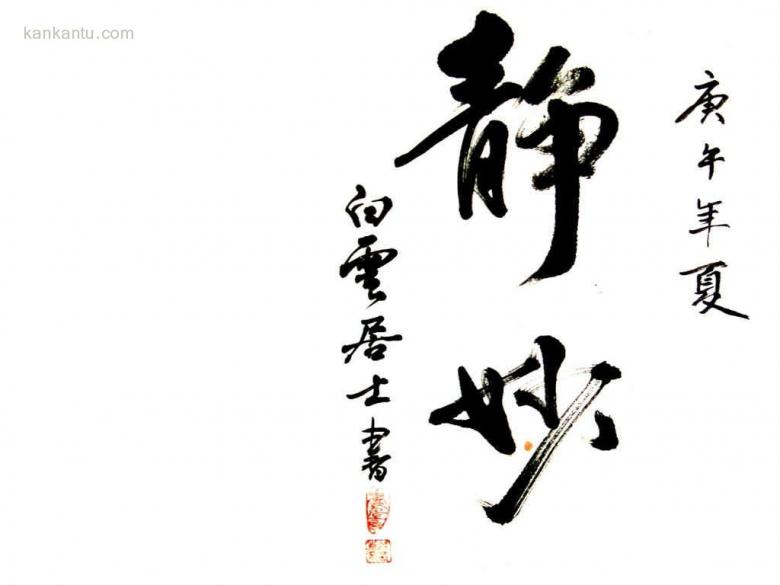 kankantu.com
庚午年夏
静妙
白雲居士書